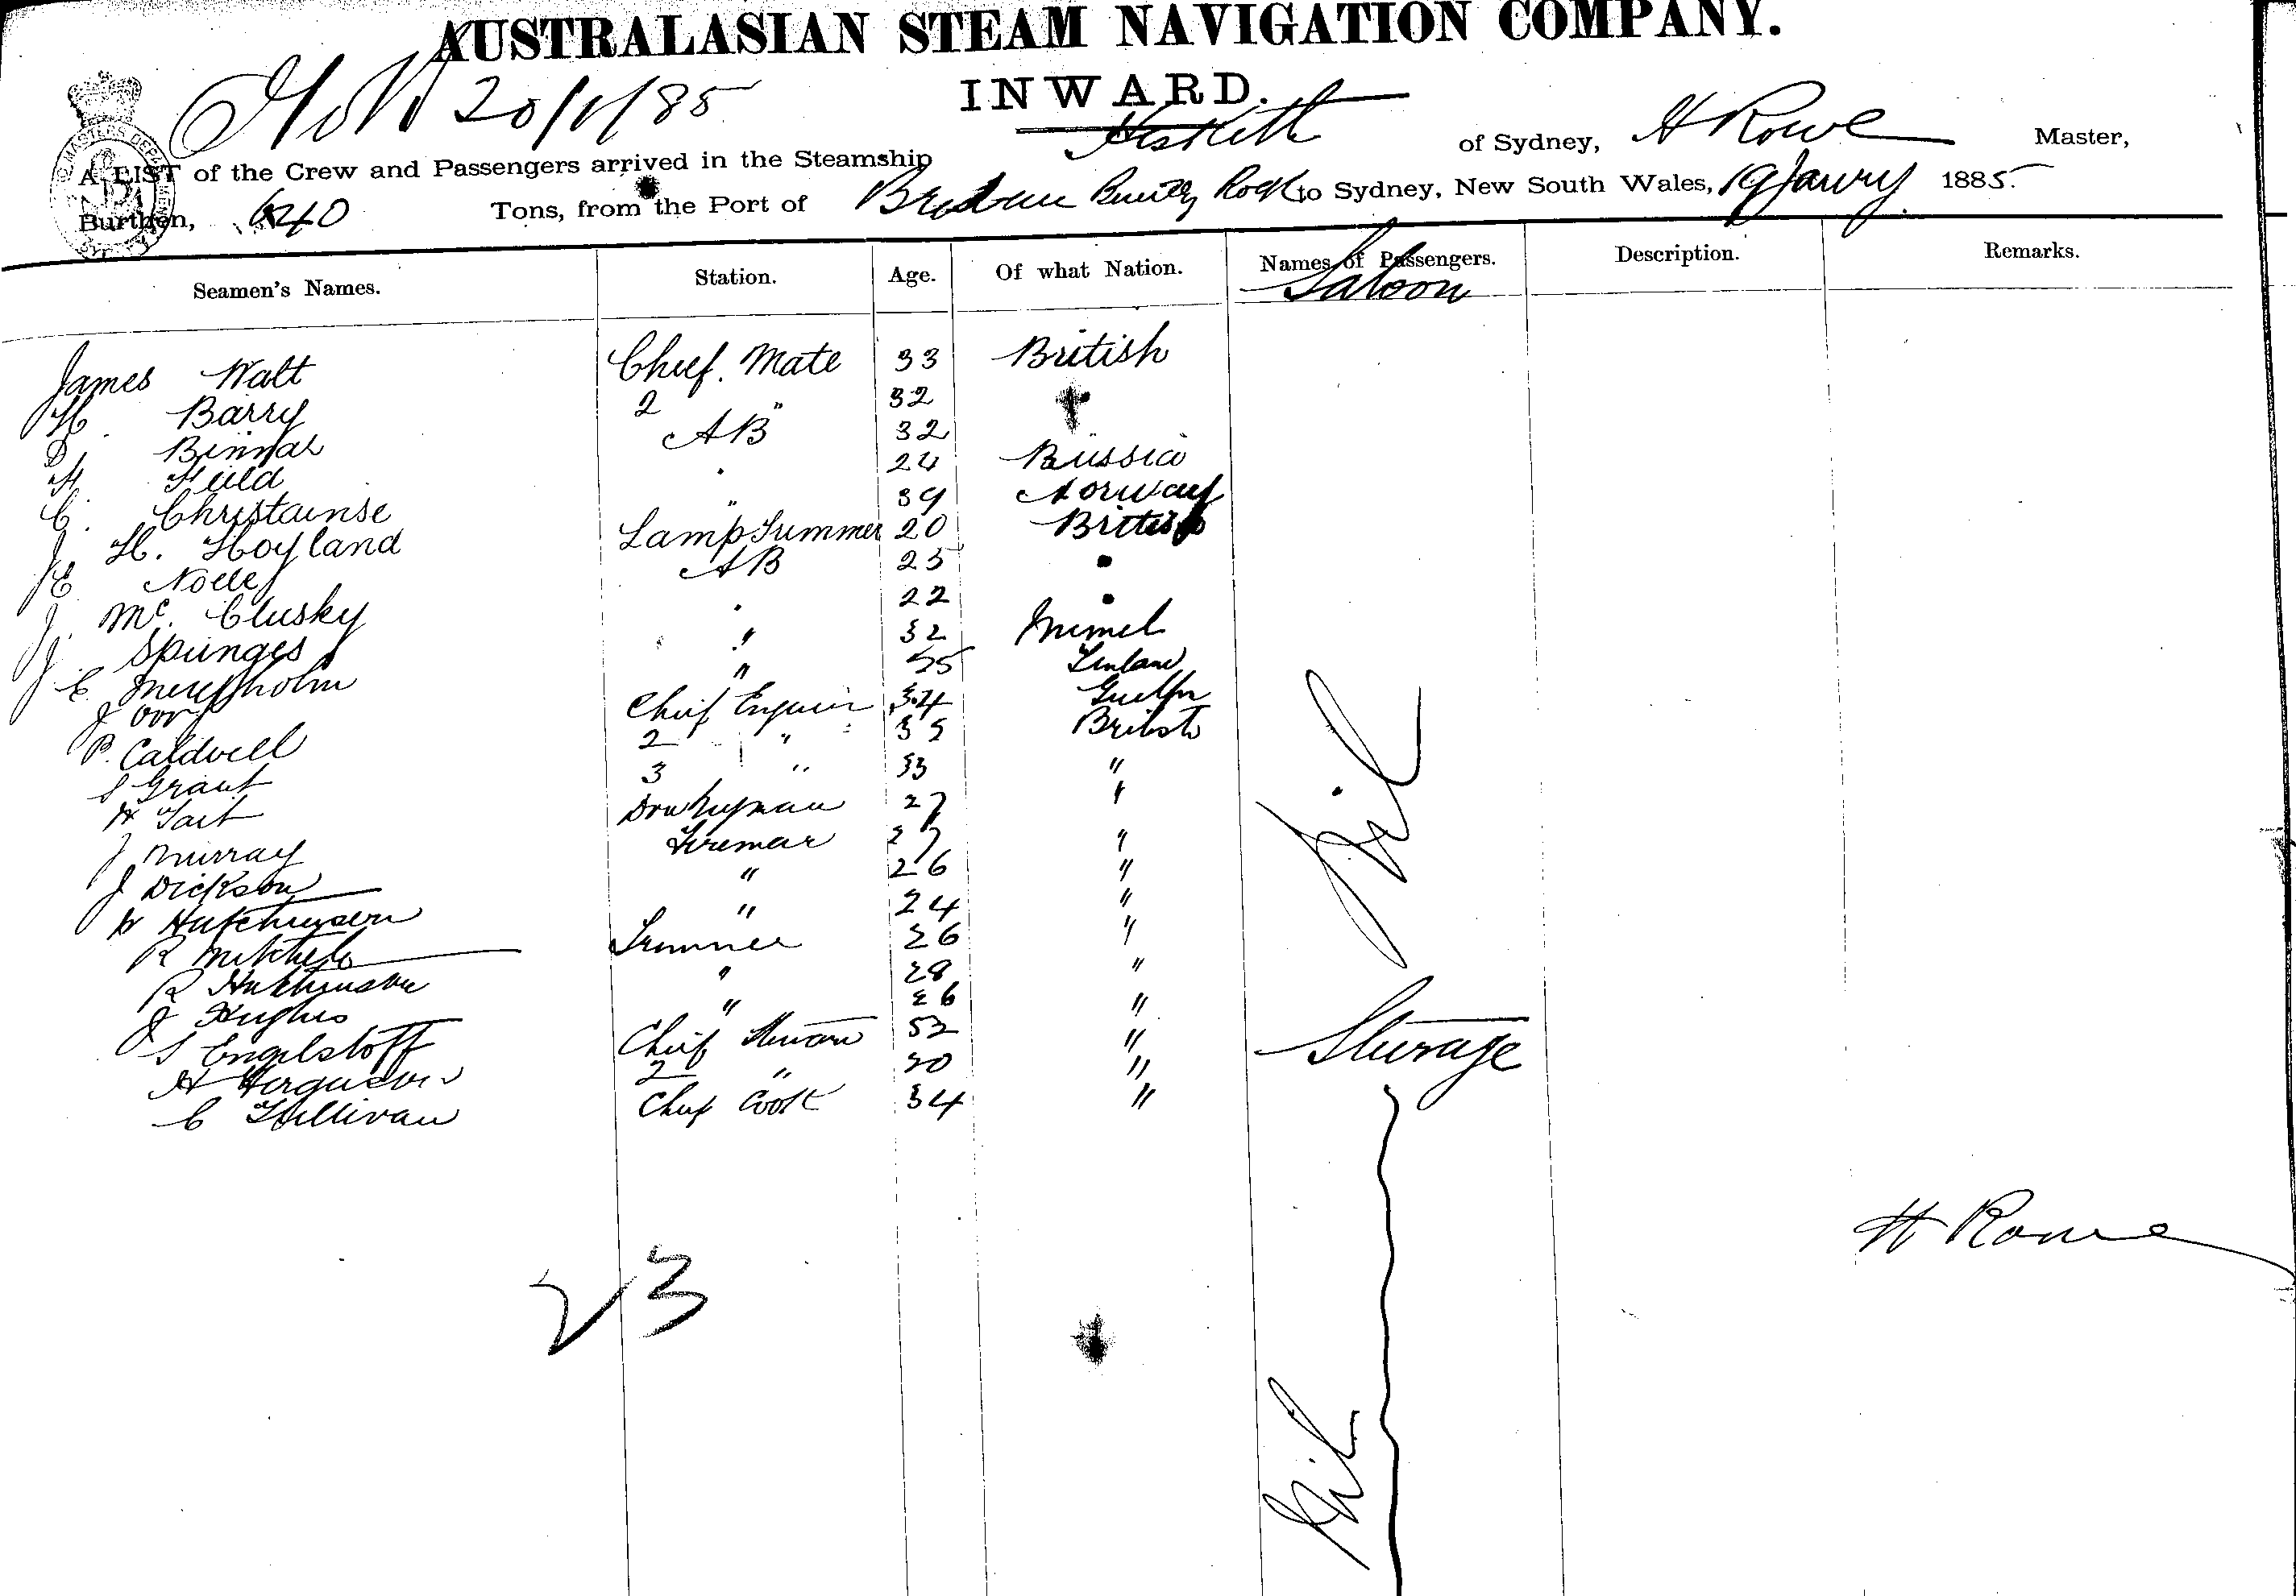 AUSTRALASIAN STEAM NAVIGATION COMPANY.
20/1/85 INWARD.
A LIST of the Crew and Passengers arrived in the Steamship Hesketh of Sydney, H Rowe Master,
Burthen, 640 Tons, from the Port of to Sydney, New South Wales, 19 Janry 1885.
Seamen's Names. Station. Age. Of what Nation. Names of Passengers. Description. Remarks.
Saloon
James Watt Chief. Mate 33 British
H Barry 2 " 32
D. Binnar AB 32
H Feild 24 Russia
C. Christainse " 39 Norway
J. H. Hoyland Lamp Trimmer 20 British
E Nolle AB 25
J. Mc. Clusky 22
J. Spunges " 32 Memel
J. C. " 55 Finland
J Orr Chief 34
P. Caldwell 2 " 35 British
S Grant 3 " 33 "
H Tait Donkeyman 27 "
J Murray Fireman 27 "
J Dickson " 26 "
W Hutchinson " 24 "
R Mitchell Trimmer 26 "
R Hutchinson " 28 "
J Hughes " 26 "
S Engelstoff Chief Steward 52 "
H Ferguson 2 " 20 "
C Sullivan Chief Cook 34 "
Nil
Steerage
Nil
H Rowe
23